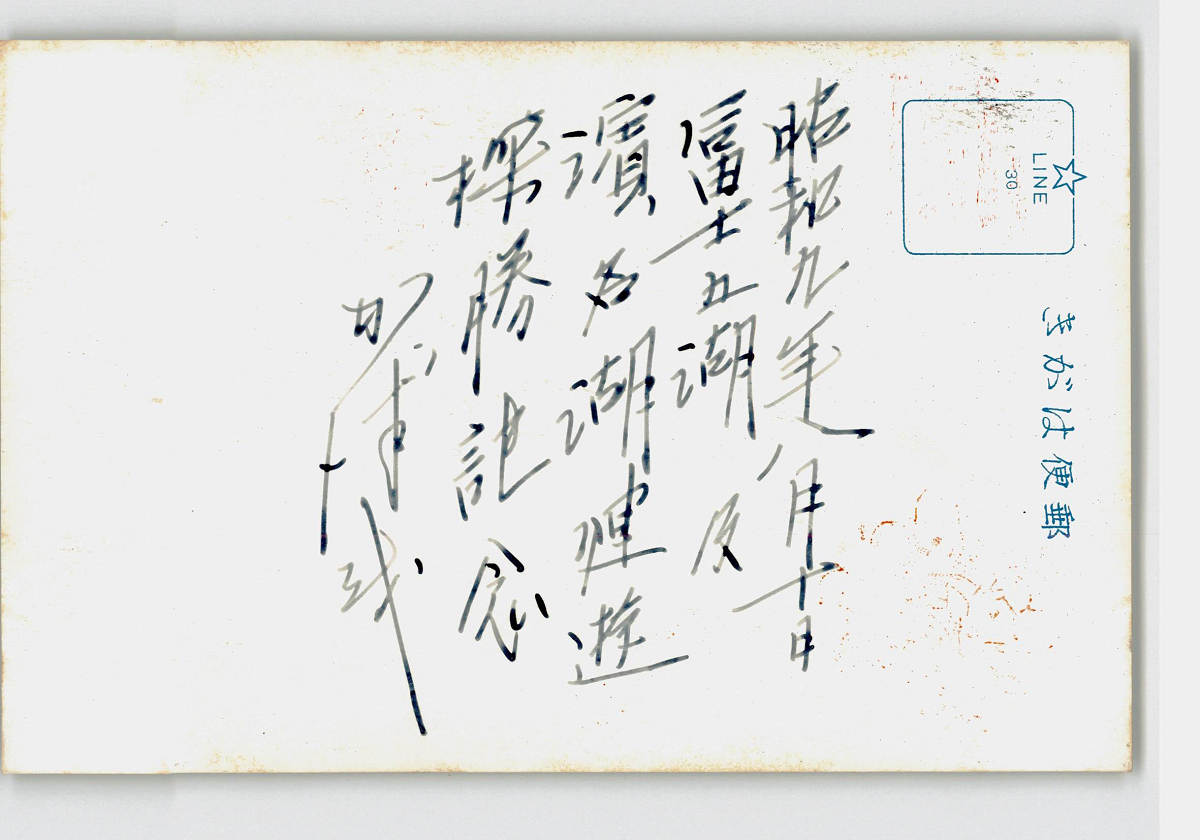 昭和九年八月十日
富士五湖及
濱名湖連遊
探勝記念
LINE
30
きがは便郵